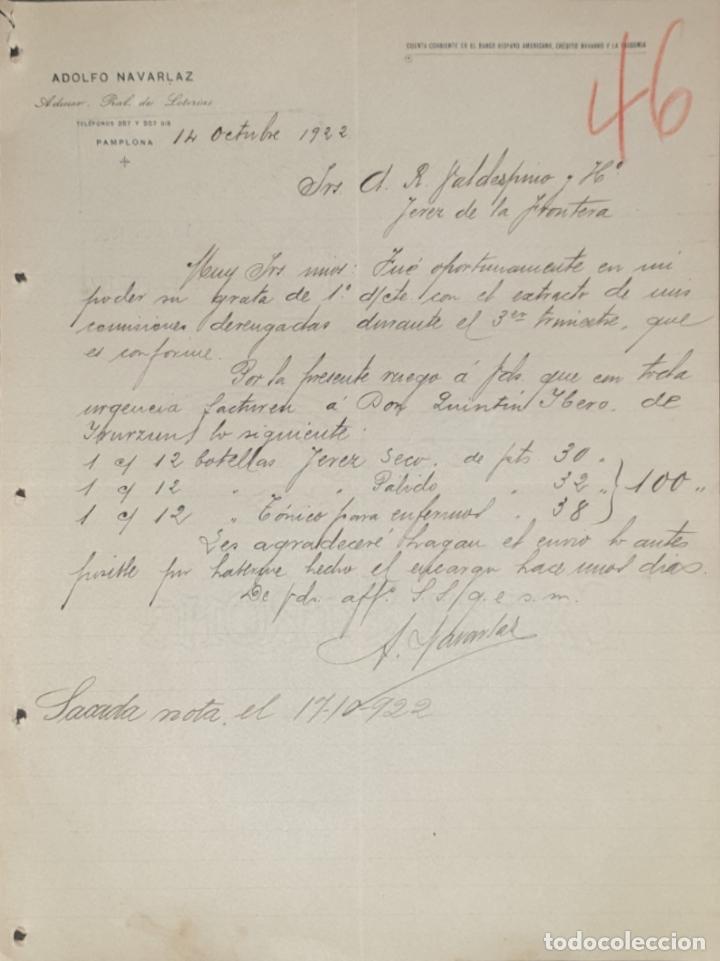 CUENTA CORRIENTE EN EL BANCO HISPANO AMERICANO, CRÉDITO NAVARRO Y LA VASCONIA
46
ADOLFO NAVARLAZ
Admor. Pral. de Loterías
TELÉFONOS 257 Y 557
PAMPLONA
14 Octubre 1922
Srs. A. R. Valdespino y Hº
Jerez de la Frontera
Muy Srs. mios: Fué oportunamente en mi
poder su grata de 1º d/cte. con el extracto de mis
comisiones devengadas durante el 3er trimestre, que
es conforme.
Por la presente ruego á Vds. que con toda
urgencia facturen á Don Quintín Ibero, de
Irurzun lo siguiente:
1 c/ 12 botellas Jerez Seco. de pts 30 "
1 c/ 12 " " Pálido " 32 " } 100 "
1 c/ 12 " Tónico para enfermos " 38
Les agradeceré hagan el envio lo antes
posible por haberme hecho el encargo hace unos días.
De Vds. affº. S. S. q. e. s. m.
A. Navarlaz
Sacada nota, el 17-10-922
todocoleccion